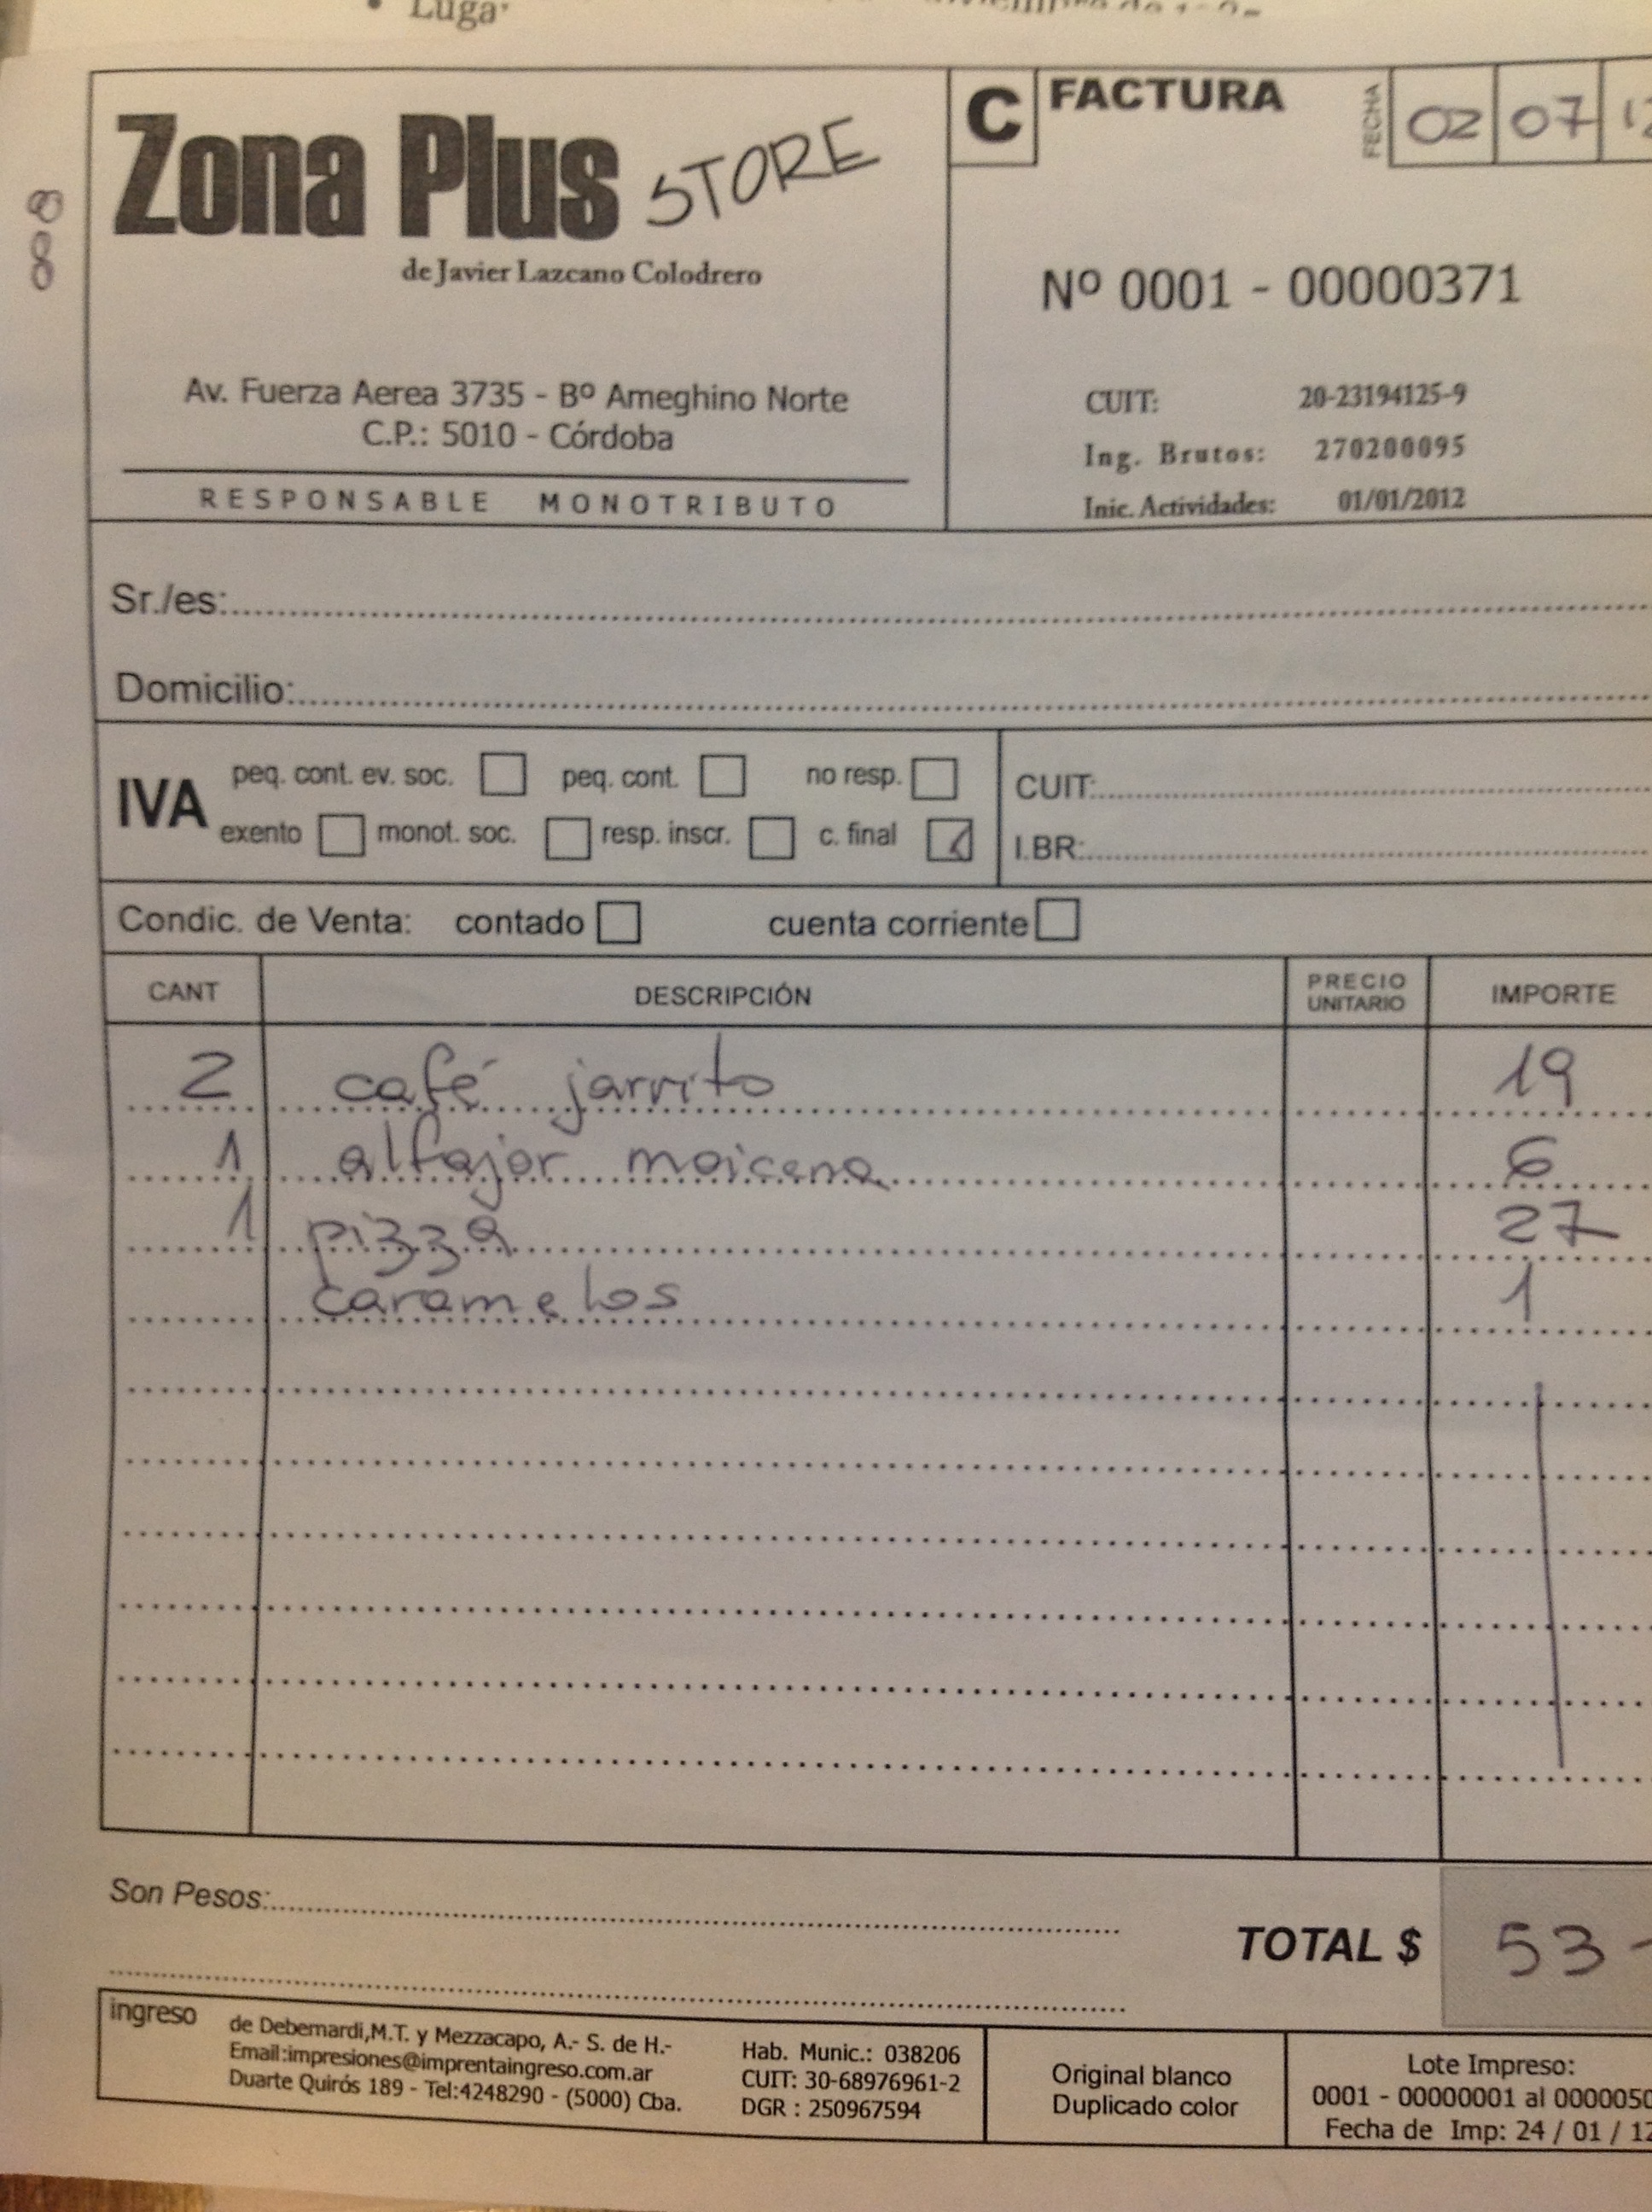 Luga
C FACTURA
FECHA 02 07
Zona Plus STORE
de Javier Lazcano Colodrero
88
Nº 0001 - 00000371
Av. Fuerza Aerea 3735 - Bº Ameghino Norte
C.P.: 5010 - Córdoba
RESPONSABLE MONOTRIBUTO
CUIT: 20-23194125-9
Ing. Brutos: 270200095
Inic. Actividades: 01/01/2012
Sr./es:
Domicilio:
IVA
peq. cont. ev. soc. peq. cont. no resp.
exento monot. soc. resp. inscr. c. final
CUIT:
I.BR:
Condic. de Venta: contado cuenta corriente
CANT DESCRIPCIÓN PRECIO UNITARIO IMPORTE
2 café jarrito 19
1 alfajor maicena 6
1 pizza 27
caramelos 1
Son Pesos:
TOTAL $ 53-
ingreso
de Debernardi,M.T. y Mezzacapo, A.- S. de H.-
Email:impresiones@imprentaingreso.com.ar
Duarte Quirós 189 - Tel:4248290 - (5000) Cba.
Hab. Munic.: 038206
CUIT: 30-68976961-2
DGR : 250967594
Original blanco
Duplicado color
Lote Impreso:
0001 - 00000001 al 0000050
Fecha de Imp: 24 / 01 / 12